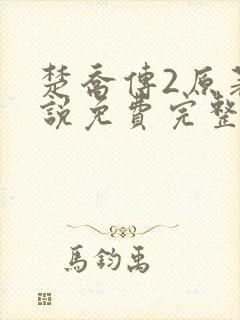 楚喬傳2原著
説免費完整
馬鈞禹